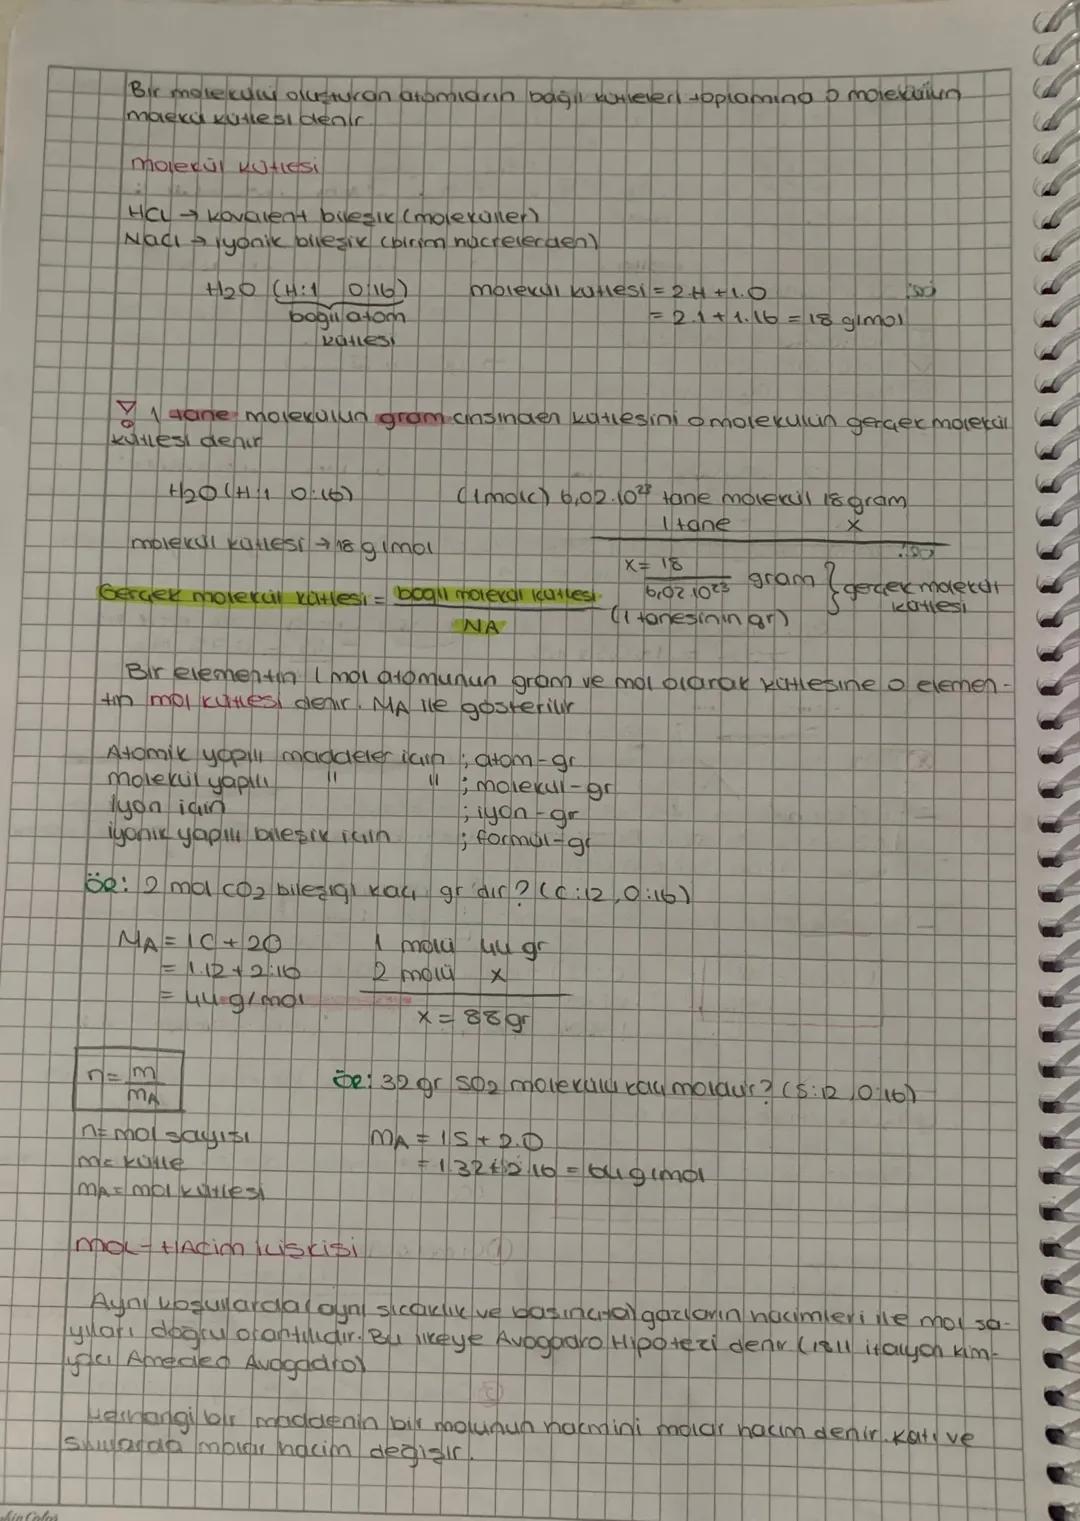 Bir molekülü oluşturan atomların bağıl kütleleri toplamına o molekülün
molekül kütlesi denir.
molekül kütlesi
HCl → kovalent bileşik (moleküller)
NaCl → iyonik bileşik (birim hücrelerden)
H2O (H:1 O:16) molekül kütlesi = 2.H + 1.O
bağıl atom = 2.1 + 1.16 = 18 g/mol
kütlesi
! 1 tane molekülün gram cinsinden kütlesini o molekülün gerçek molekül
kütlesi denir
H2O (H:1 O:16) (1 molü) 6,02.10²³ tane molekül 18 gram
1 tane x
molekül kütlesi → 18 g/mol
x = 18
Gerçek molekül kütlesi = bağıl molekül kütlesi 6,02.10²³ gram } gerçek molekül
kütlesi
NA (1 tanesinin gr)
Bir elementin 1 mol atomunun gram ve mol olarak kütlesine o elemen-
tin mol kütlesi denir. MA ile gösterilir
Atomik yapılı maddeler için ; atom-gr
molekül yapılı " " ; molekül-gr
iyon için ; iyon-gr
iyonik yapılı bileşik için ; formül-gr
ÖR: 2 mol CO2 bileşiği kaç gr dır? (C:12, O:16)
MA = 1C + 2O 1 molü 44 gr
= 1.12 + 2.16 2 molü x
= 44 g/mol
x = 88 gr
n = m
MA
ÖR: 32 gr SO2 molekülü kaç moldür? (S:12, O:16)
n = mol sayısı MA = 1S + 2.O
m = kütle = 1.32 + 2.16 = 64 g/mol
MA = mol kütlesi
MOL - HACİM İLİŞKİSİ
Aynı koşullarda (aynı sıcaklık ve basınçta) gazların hacimleri ile mol sa-
yıları doğru orantılıdır. Bu ilkeye Avogadro Hipotezi denir (1811 italyan kim-
yacı Amedeo Avogadro)
Herhangi bir maddenin bir molünün hacmini molar hacim denir. Katı ve
sıvılarda molar hacim değişir.